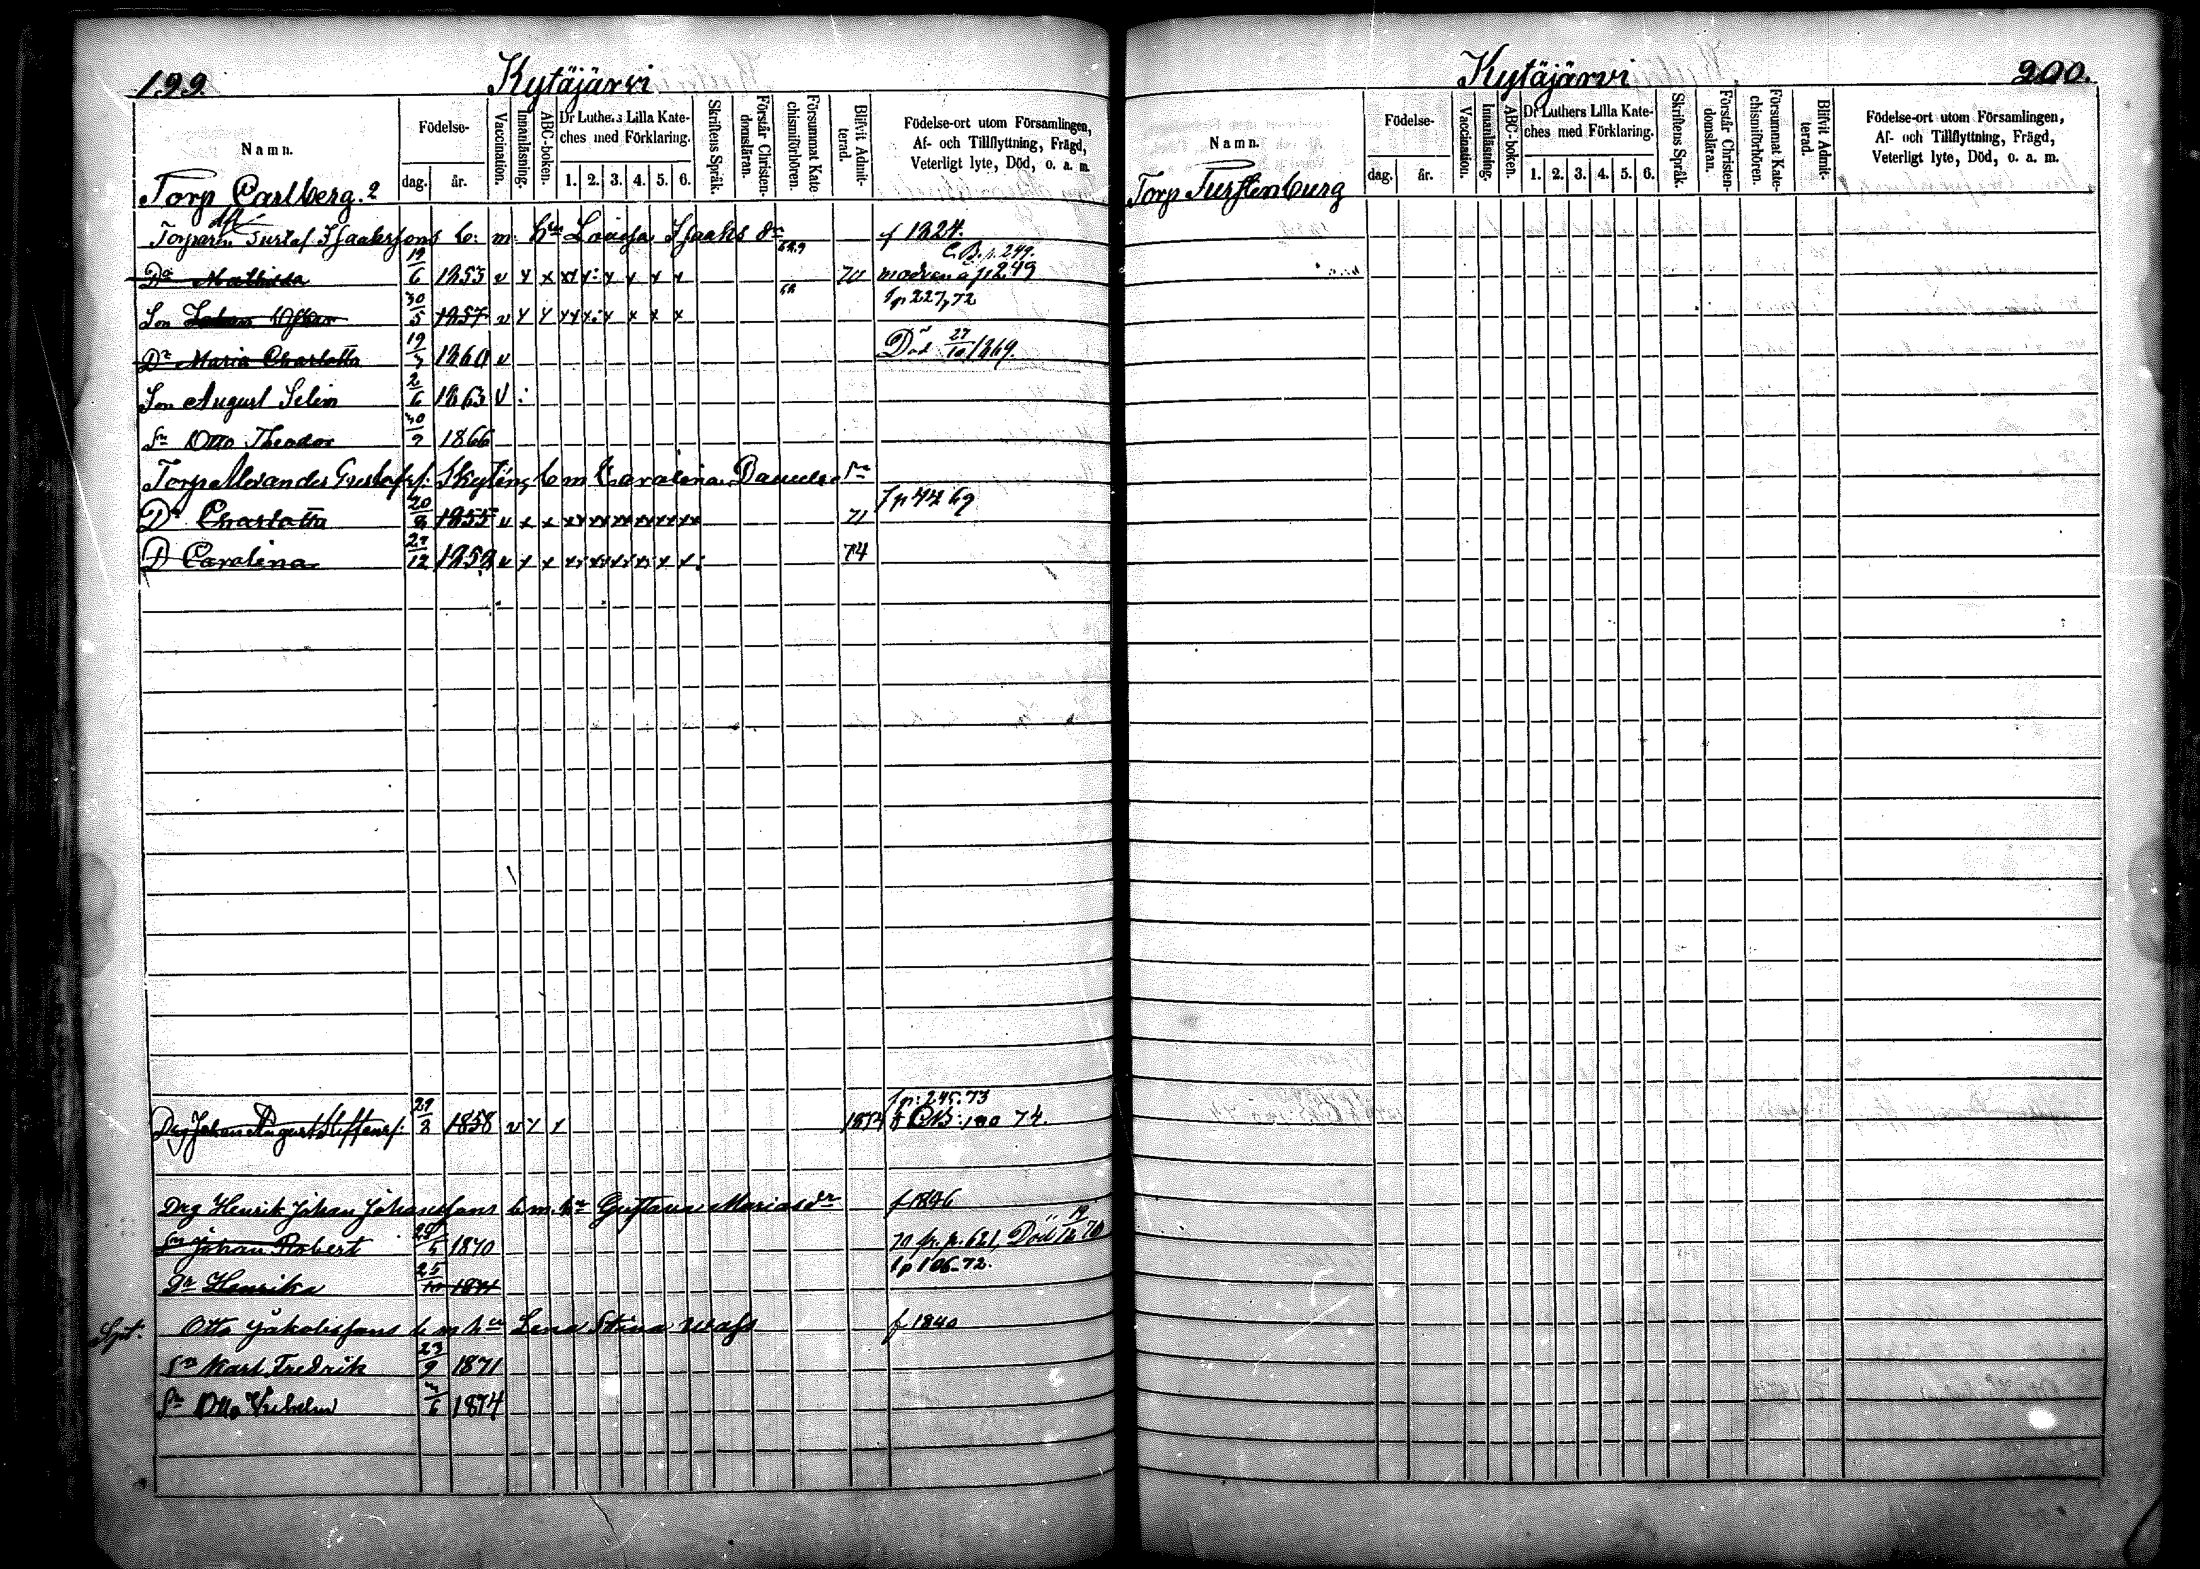 199.
Kytäjärvi
Namn.
Födelse-
dag.
år.
Vaccination.
Innanläsning.
ABC-boken.
Dr Luthers Lilla Kate-
ches med Förklaring.
1. 2. 3. 4. 5. 6.
Skriftens Språk.
Förstår Christen-
domsläran.
Försummat Kate-
chismiförhören.
Blifvit Admit-
terad.
Födelse-ort utom Församlingen,
Af- och Tillflyttning, Frägd,
Veterligt lyte, Död, o. a. m.
Torp Carlberg. 2
Gustaf Isaaksons b. m. Lovisa Isaaks dr f 1824.
C.B. p. 249.
Dr Mathilda 19/6 1853 v x x 70 modren å p 249
fp 227, 72
Son Johan 30/5 1857 v x x
Dr Maria Charlotta 1860 v Död 27/10 1869.
Son August Selim 2/6 1863 v
Sn Otto Theodor 30/9 1866
Torp Alexander Gustafs. Skyting b m Carolina Daniels
fp 44 69
Dr Charlotta 20/8 1855 v x x 71
D Carolina 27/12 1858 v x x 74
fp: 245. 73
Drg Johan August Steffansf: 29/2 1858 v 1874 CB: 74.
Drg Henrik Johan Johanssons b. m. hu Gustava Mariasdr f 1846
Sn Johan Robert 1870 70 fr. p. 621, Död
fp 106-72.
Dr Henrika 25 1871
Otto Jakobssons b m hu Lena Stina f 1840
Sn Karl Fredrik 23/9 1871
Sn Otto Vilhelm 1874
Kytäjärvi
200.
Namn.
Födelse-
dag.
år.
Vaccination.
Innanläsning.
ABC-boken.
Dr Luthers Lilla Kate-
ches med Förklaring.
1. 2. 3. 4. 5. 6.
Skriftens Språk.
Förstår Christen-
domsläran.
Försummat Kate-
chismiförhören.
Blifvit Admit-
terad.
Födelse-ort utom Församlingen,
Af- och Tillflyttning, Frägd,
Veterligt lyte, Död, o. a. m.
Torp Furstenburg